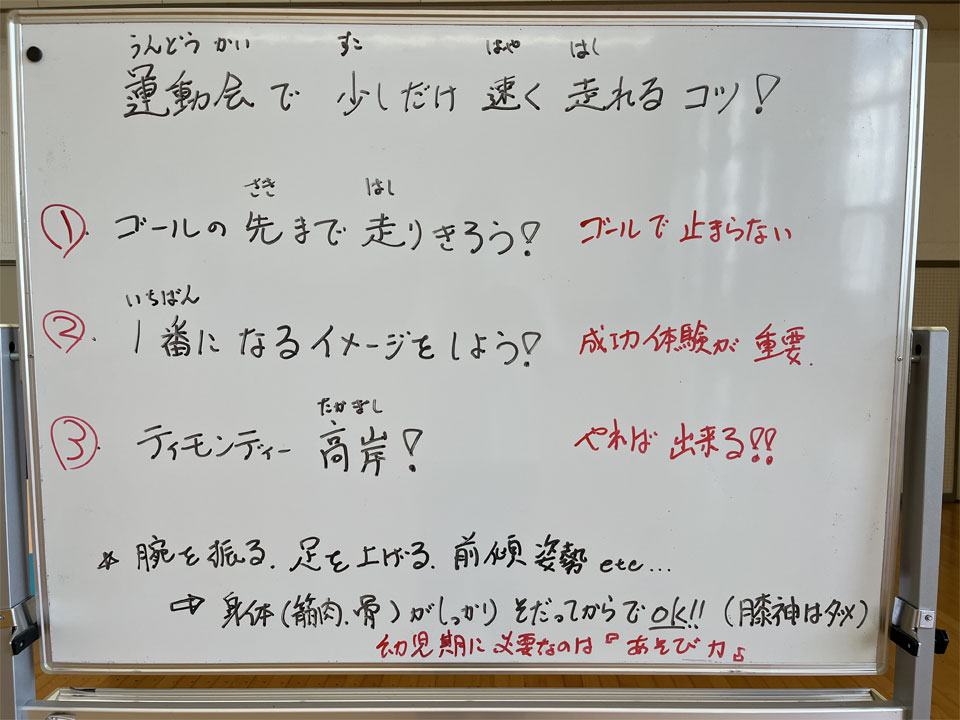 うんどうかい すこ はや はし
運動会で 少しだけ 速く 走れる コツ!
さき はし
①. ゴールの 先まで 走りきろう! ゴールで 止まらない
いちばん
②. 1番に なるイメージをしよう! 成功体験が 重要.
たかぎし
③. ティモンディー 高岸! やれば 出来る!!
* 腕を振る. 足を上げる. 前傾姿勢 etc...
⇨ 身体(筋肉.骨)がしっかり そだってからで OK!! (膝神はダメ)
幼児期に必要なのは『あそび力』